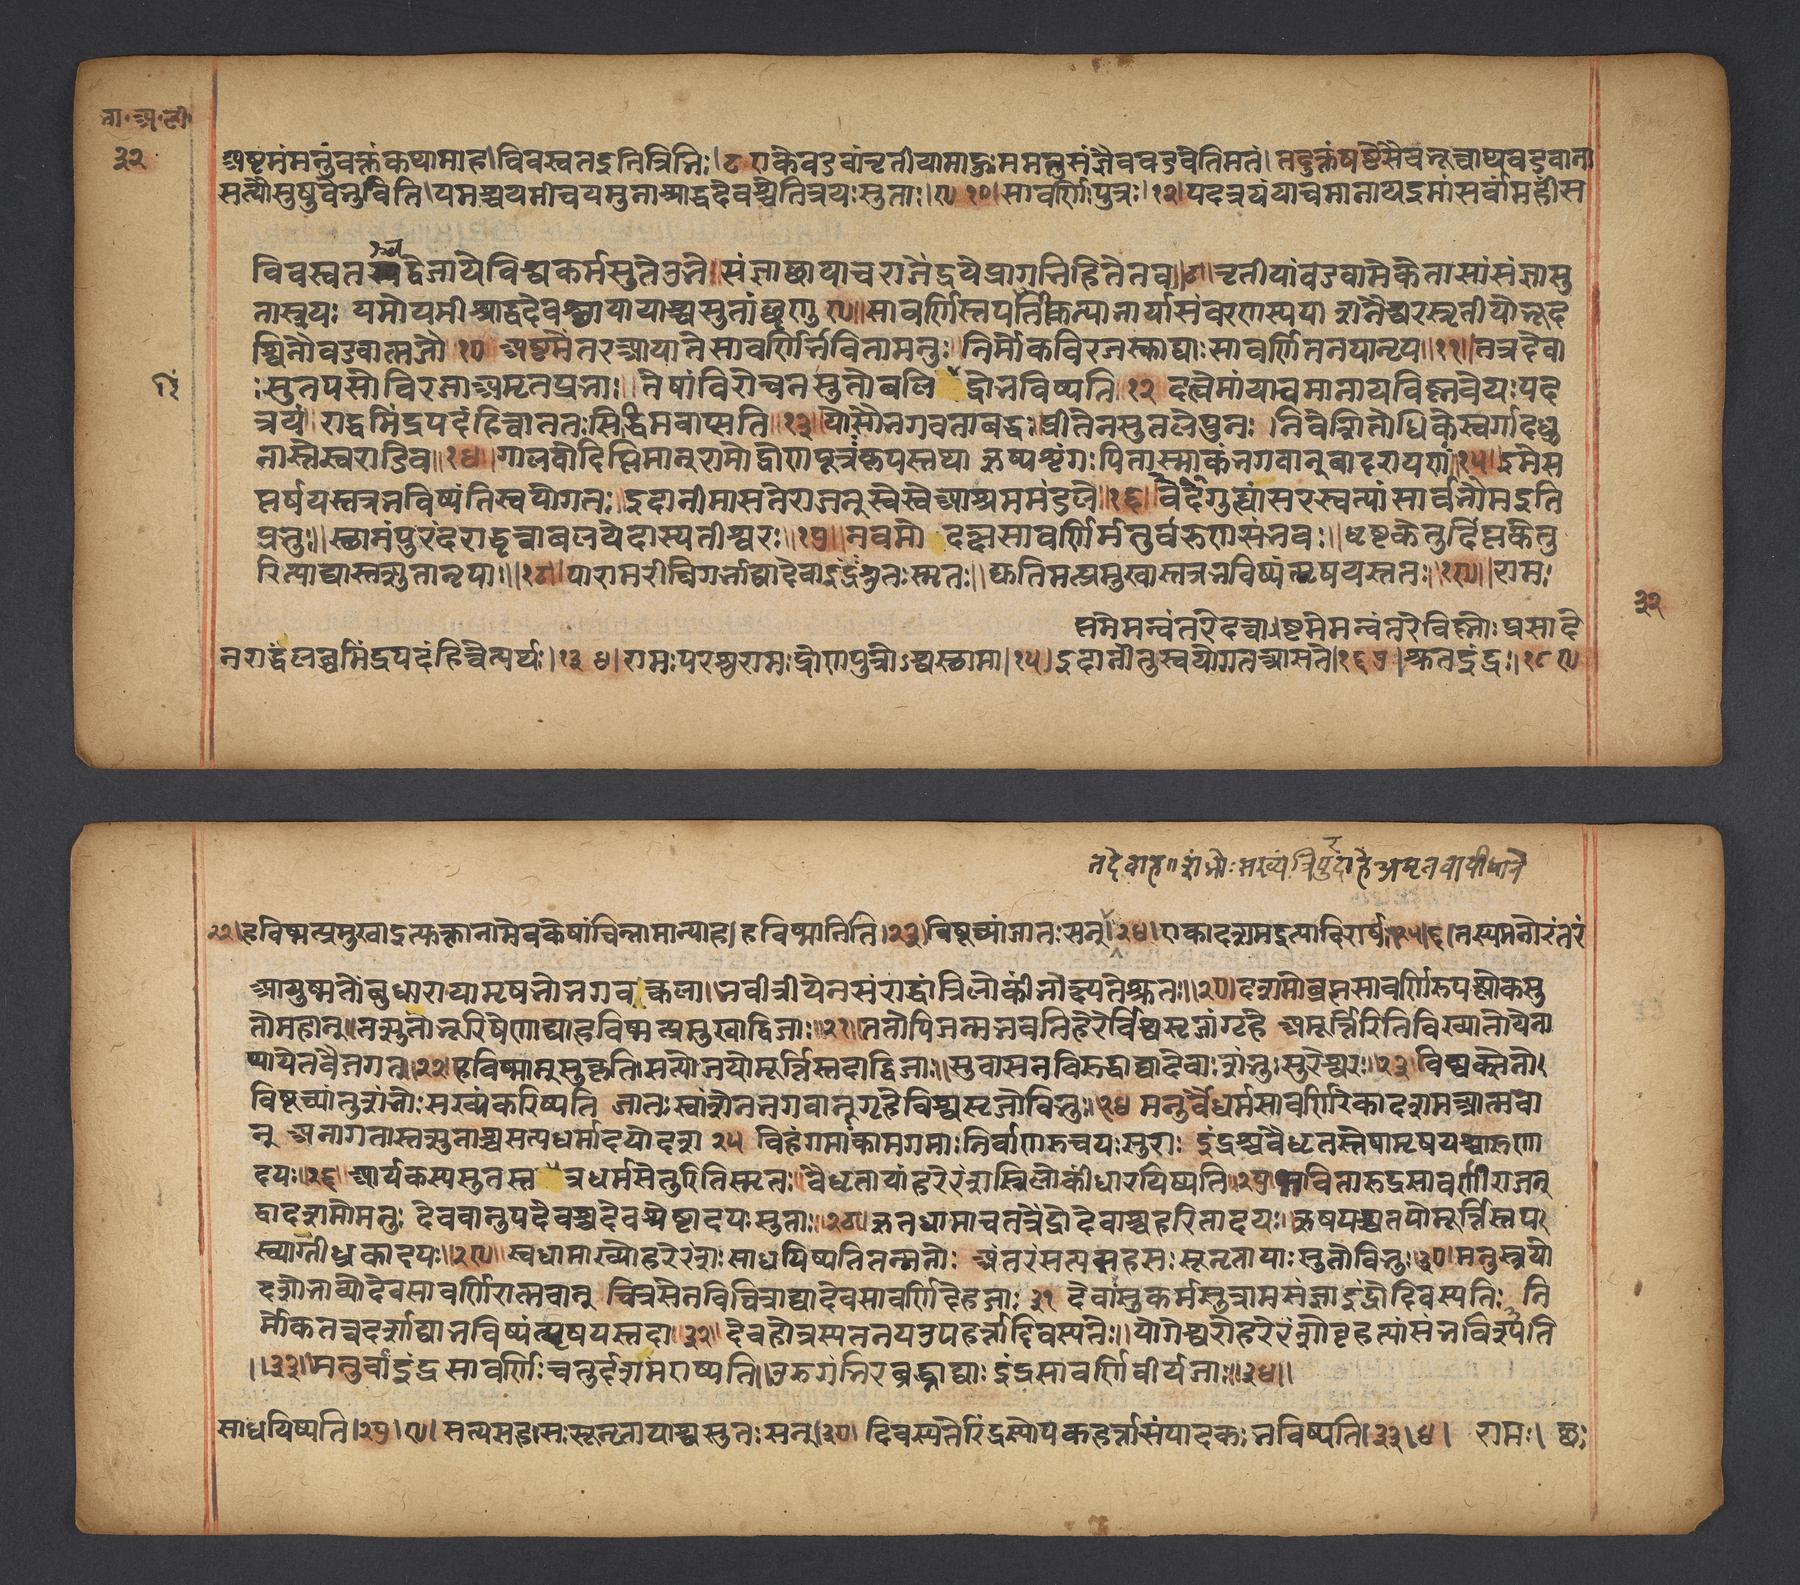 भा॰अ॰टी॰
३२
अष्टमंमनुंवक्तुंकथामाह।विवस्वतइतित्रिभिः।८एकेवडवांतृतीयामाहुःममतुसंज्ञैववडवेतिमतं।तदुक्तंषष्ठेसैवभूत्वाथवडवानास
सत्यौसुषुवेभुवीति।यमश्चयमीचयमुनाश्राद्धदेवश्चेतित्रयःसुताः।९१०।सावर्णिःपुत्रः।१२।पदत्रयंयाचमानायइमांसर्वांमहींस
विवस्वतश्चद्वेजायेविश्वकर्मसुतेउभे॥संज्ञाछायाचराजेंद्रयेप्रागभिहितेतव॥८॥तृतीयांवडवामेकेतासांसंज्ञासु
तास्त्रयः यमोयमीश्राद्धदेवश्छायायाश्चसुतांछृणु९॥सावर्णिस्तपतीकन्याभार्यासंवरणस्यया शनैश्चरस्तृतीयोभूद
श्विनौवडवात्मजौ १० अष्टमेंतरआयातेसावर्णिर्भवितामनुः निर्मोकविरजस्काद्याःसावर्णितनयानृप॥११॥तत्रदेवा
ःसुतपसोविरजाअमृतप्रभाः॥तेषांविरोचनसुतोबलिरिंद्रोभविष्यति॥१२ दत्वेमांयाचमानायविष्णवेयःपद
त्रयं॥राद्धमिंद्रपदंहित्वाततःसिद्धिमवाप्स्यति॥१३॥योसौभगवताबद्धःप्रीतेनसुतलेपुनः।निवेशितोधिकेस्वर्गादधु
नास्तेस्वराडिव॥१४॥गालवोदीप्तिमान्रामोद्रोणपुत्रंकृपस्तथा ऋष्यशृंगःपितास्माकंभगवान्बादरायणः॥१५॥इमेस
प्तर्षयस्तत्रभविष्यंतिस्वयोगतः।इदानीमासतेराजन्स्वेस्वेआश्रममंडले॥१६॥देवगुह्यांसरस्वत्यांसार्वभौमइति
प्रभुः॥स्थानंपुरंदराद्धृत्वाबलयेदास्यतीश्वरः॥१७॥नवमो दक्षसावर्णिर्मनुर्वरुणसंभवः॥धृष्टकेतुर्दिप्तकेतु
रित्याद्यास्तत्सुतानृपा॥॥१८॥पारामरीचिगर्भाद्यादेवाइंद्रोद्भुतःस्मृतः॥द्युतिमत्प्रमुखास्तत्रभविष्यंत्यृषयस्ततः॥१९॥॥रामः
३२
प्तमेमन्वंतरेदत्वा।ष्टमेमन्वंतरेविष्णोःप्रसादे
नराद्धंलब्धमिंद्रपदंहित्वेत्यर्थः।१३४।रामःपरशुरामःद्रोणपुत्रोऽश्वस्थामा।१५।इदानींतुस्वयोगतआसते।१६७।श्रुतइंद्रः।१८९
तदेवाह॥शंभोःसख्यं त्रिपुरदाहे अमृतवापीपाने
२२।हविष्मत्प्रमुखाइत्युक्तानामेवकेषांचिन्नामान्याह।हविष्मानिति।२३।विषूच्यांजातःसन्।२४।एकादशमइत्यादिरार्षः।२५।६।तस्यमनोरंतरं
आयुष्मतोंबुधारायामृषभोभगवत्कला।भवीत्रीयेनसंराद्धांत्रिलोकींभोक्ष्यतेश्रुतः॥२०।दशमोब्रह्मसावर्णिरुपश्लोकसु
तोमहान्॥तत्सुताभूरिषेणाद्याहविष्मत्प्रमुखाद्विजाः॥२१॥ततोपिजन्मभवतिहरेर्विश्वसृजांगृहे अमूर्त्तिरितिविख्यातोयेना
प्यायेतवैजगत्।२२॥हविष्मान्सुकृतिःसत्योजयोमूर्त्तिस्तदाद्विजाः॥सुवासनविरुद्धाद्यादेवाःशंभुःसुरेश्वरः॥२३॥विश्वक्सेनो।
विषूच्यांतुशंभोःसख्यंकरिष्यति जातःस्वांशेनभगवान्गृहेविश्वसृजोविभुः॥२४ मनुर्वैधर्मसावर्णिरेकादशमआत्मवा
न् अनागतास्तत्सुताश्चसत्यधर्मादयोदश २५ विहंगमाःकामगमाःनिर्वाणरुचयःसुराः इंद्रश्चवैधृतस्तेषामृषयश्चारुणा
दयः॥२६ आर्यकस्यसुतस्तत्रधर्मसेतुरितिस्मृतः॥वैधृतायांहरेरंशस्त्रिलोकींधारयिष्यति॥२७॥भवितारुद्रसावर्णीराजन्
द्वादशमोमनुः देववानुपदेवश्चदेवश्रेष्ठादयःसुताः॥२८॥ऋतधामाचतत्रेंद्रोदेवाश्चहरितादयः।ऋषयश्चतपोमूर्त्तिस्तप
स्व्याग्नीध्रकादयः॥२९॥स्वधामाख्योहरेरंशःसाधयिष्यतितन्मनोः अंतरंसत्यसहसःसूनृतायाःसुतोविभुः॥३०॥मनुस्त्रयो
दशोभाव्योदेवसावर्णिरात्मवान् चित्रसेनविचित्राद्यादेवसावर्णिदेहजाः ३१ देवाःसुकर्मसुत्रामसंज्ञाइंद्रोदिवस्पतिः नि
र्मोकतत्वदर्शाद्याभविष्यंत्यृषयस्तदा॥३२॥देवहोत्रस्यतनयउपहर्त्तादिवस्पतेः॥योगेश्वरोहरेरंशोबृहत्यांसंभविष्यति
॥३३॥मनुर्वाइंद्रसावर्णिःचतुर्दशमएष्यति॥उरुगंभीरबुद्ध्याद्याःइंद्रसावर्णिवीर्यजाः॥३४॥
साधयिष्यति।२७।९।सत्यसहसःसूनृतायाश्चसुतःसन्।३०।दिवस्पतेरिंद्रस्योपकहर्त्तासंपादकःभविष्यति।३३।४। रामः। छः